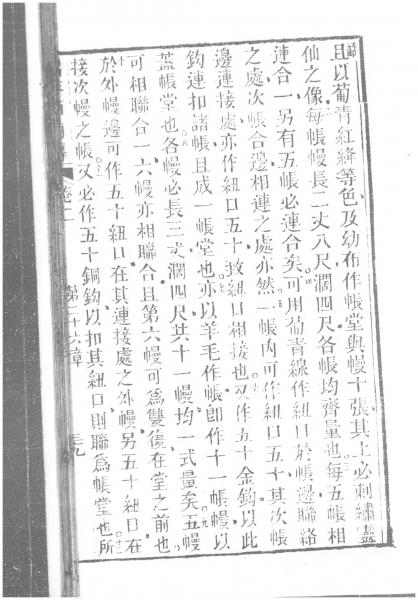 且以葡青紅絳等色及幼布作帳堂與幔十張其上必刺繡靈
仙之像每帳幔長二丈八尺濶四尺各帳均齊量也每五帳相
連合一另有五帳必連合矣可用葡青線作紐口於帳邊聯絡
之處次帳合邊相連之處亦然一帳內可作紐口五十其次帳
邊連接處亦作紐口五十致紐口相接也又作五十金鈎以此
鈎連扣諸帳且成一帳堂也亦以羊毛作帳即作十一帳幔以
蓋帳堂也各幔必長三丈濶四尺共十一幔均一式量矣五幔
可相聯合一六幔亦相聯合且第六幔可爲雙復在堂之前也
於外幔邊可作五十紐口在其連接處之外幔另五十紐口在
接次幔之帳又必作五十銅鈎以扣其紐口則聯爲帳堂也所
卷二 第二十六章